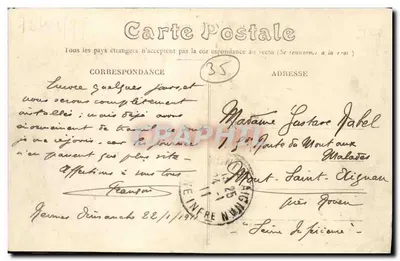 Carte Postale
Tous les pays étrangers n'acceptent pas la correspondance au recto (Se renseigner à la poste)
CORRESPONDANCE
ADRESSE
35
Encore quelques jours, et
nous serons complètement
installés: mais déjà avons
énormément de travail
je me réjouis, car la journée
n'en passent que plus vite.
Affections à vous tous
François
Rennes Dimanche 22/1/1911
Madame Gustave Nabel
Route de Mont aux
Malades
Mont Saint Aignan
près Rouen
"Seine Inférieure"